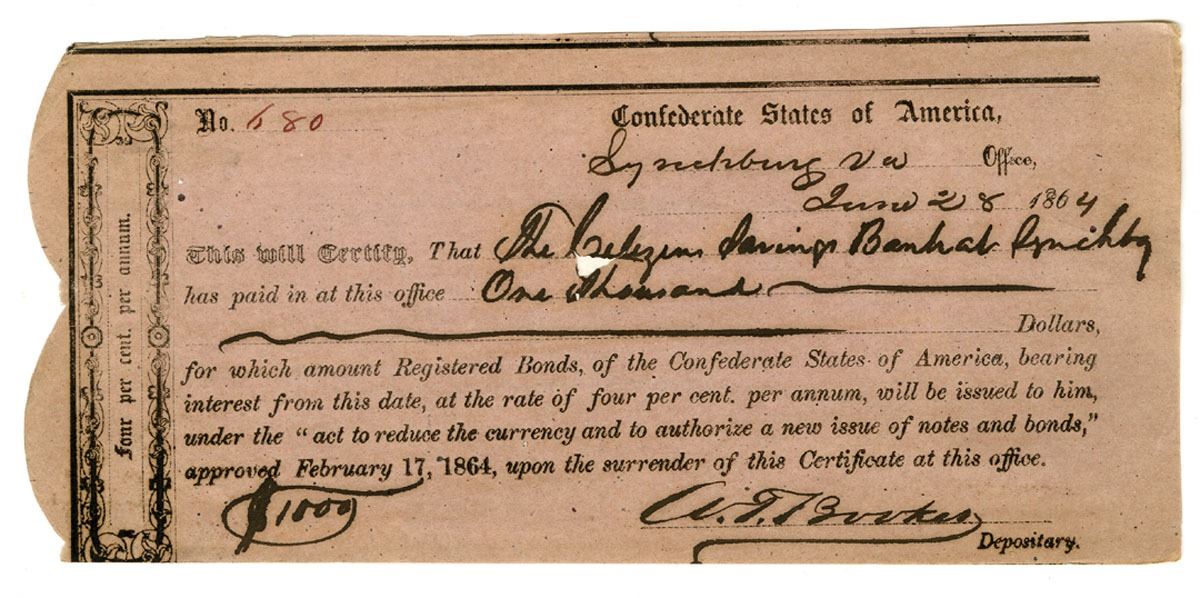 No. 680
Confederate States of America,
Lynchburg Va Office,
June 28 1864
This will Certify, That The Citizens Savings Bank at Lynchbg
has paid in at this office One Thousand
Dollars,
for which amount Registered Bonds, of the Confederate States of America, bearing
interest from this date, at the rate of four per cent. per annum, will be issued to him,
under the "act to reduce the currency and to authorize a new issue of notes and bonds,"
approved February 17, 1864, upon the surrender of this Certificate at this office.
$1000
A. T. Booker
Depositary.
Four per cent. per annum.